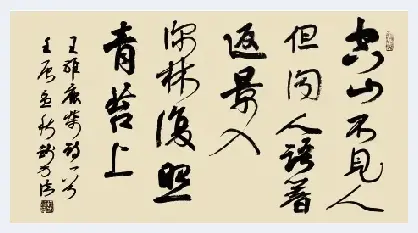 空山不見人
但聞人語響
返景入
深林復照
青苔上
王維鹿柴詩一首